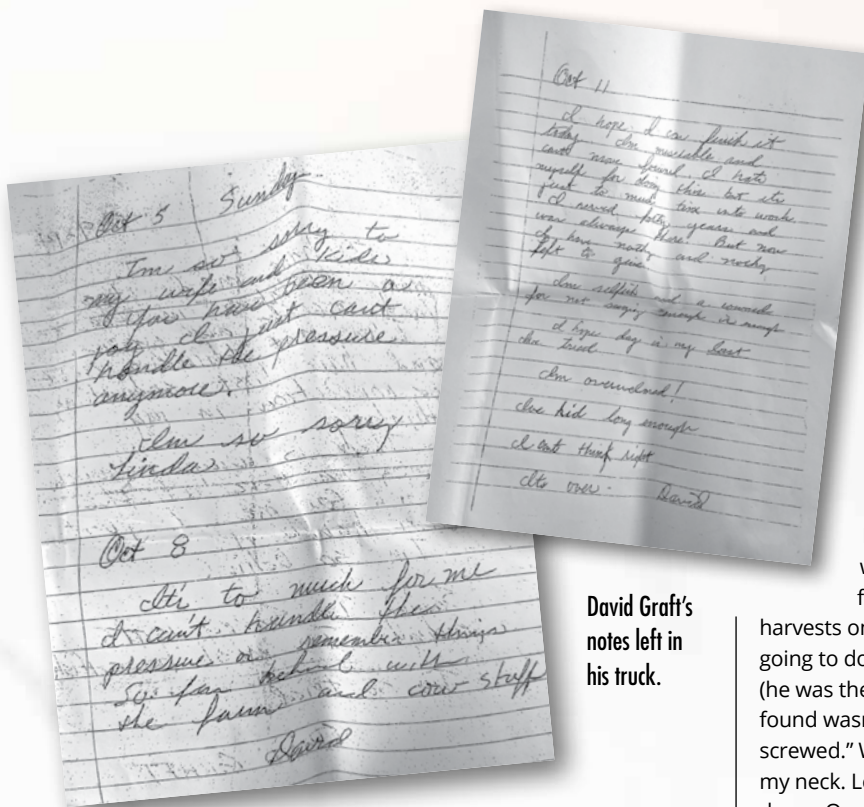 Oct 5 Sunday
Im so sorry to
my wife and Kids
You have been a
joy I just cant
handle the pressure
anymore.
Im so sorry
Linda
Oct 8
Its to much for me
I can't handle the
pressure or remember things
So far behind with
the farm and cow stuff
David
Oct 11
I hope I can finish it
today Im miserable and
cant move forward. I hate
myself for doing this but its
just to much time into work
I served forty years and
was always there! But now
I have nothing and nothing
left to give
Im selfish and a coward
for not saying enough is enough
I hope day is my last
Ive tried
Im overwelmed!
Ive hid long enough
I cant think right
Its over. David
David Graft's
notes left in
his truck.
harvests
going to do
(he was the
found
screwed."
my neck.